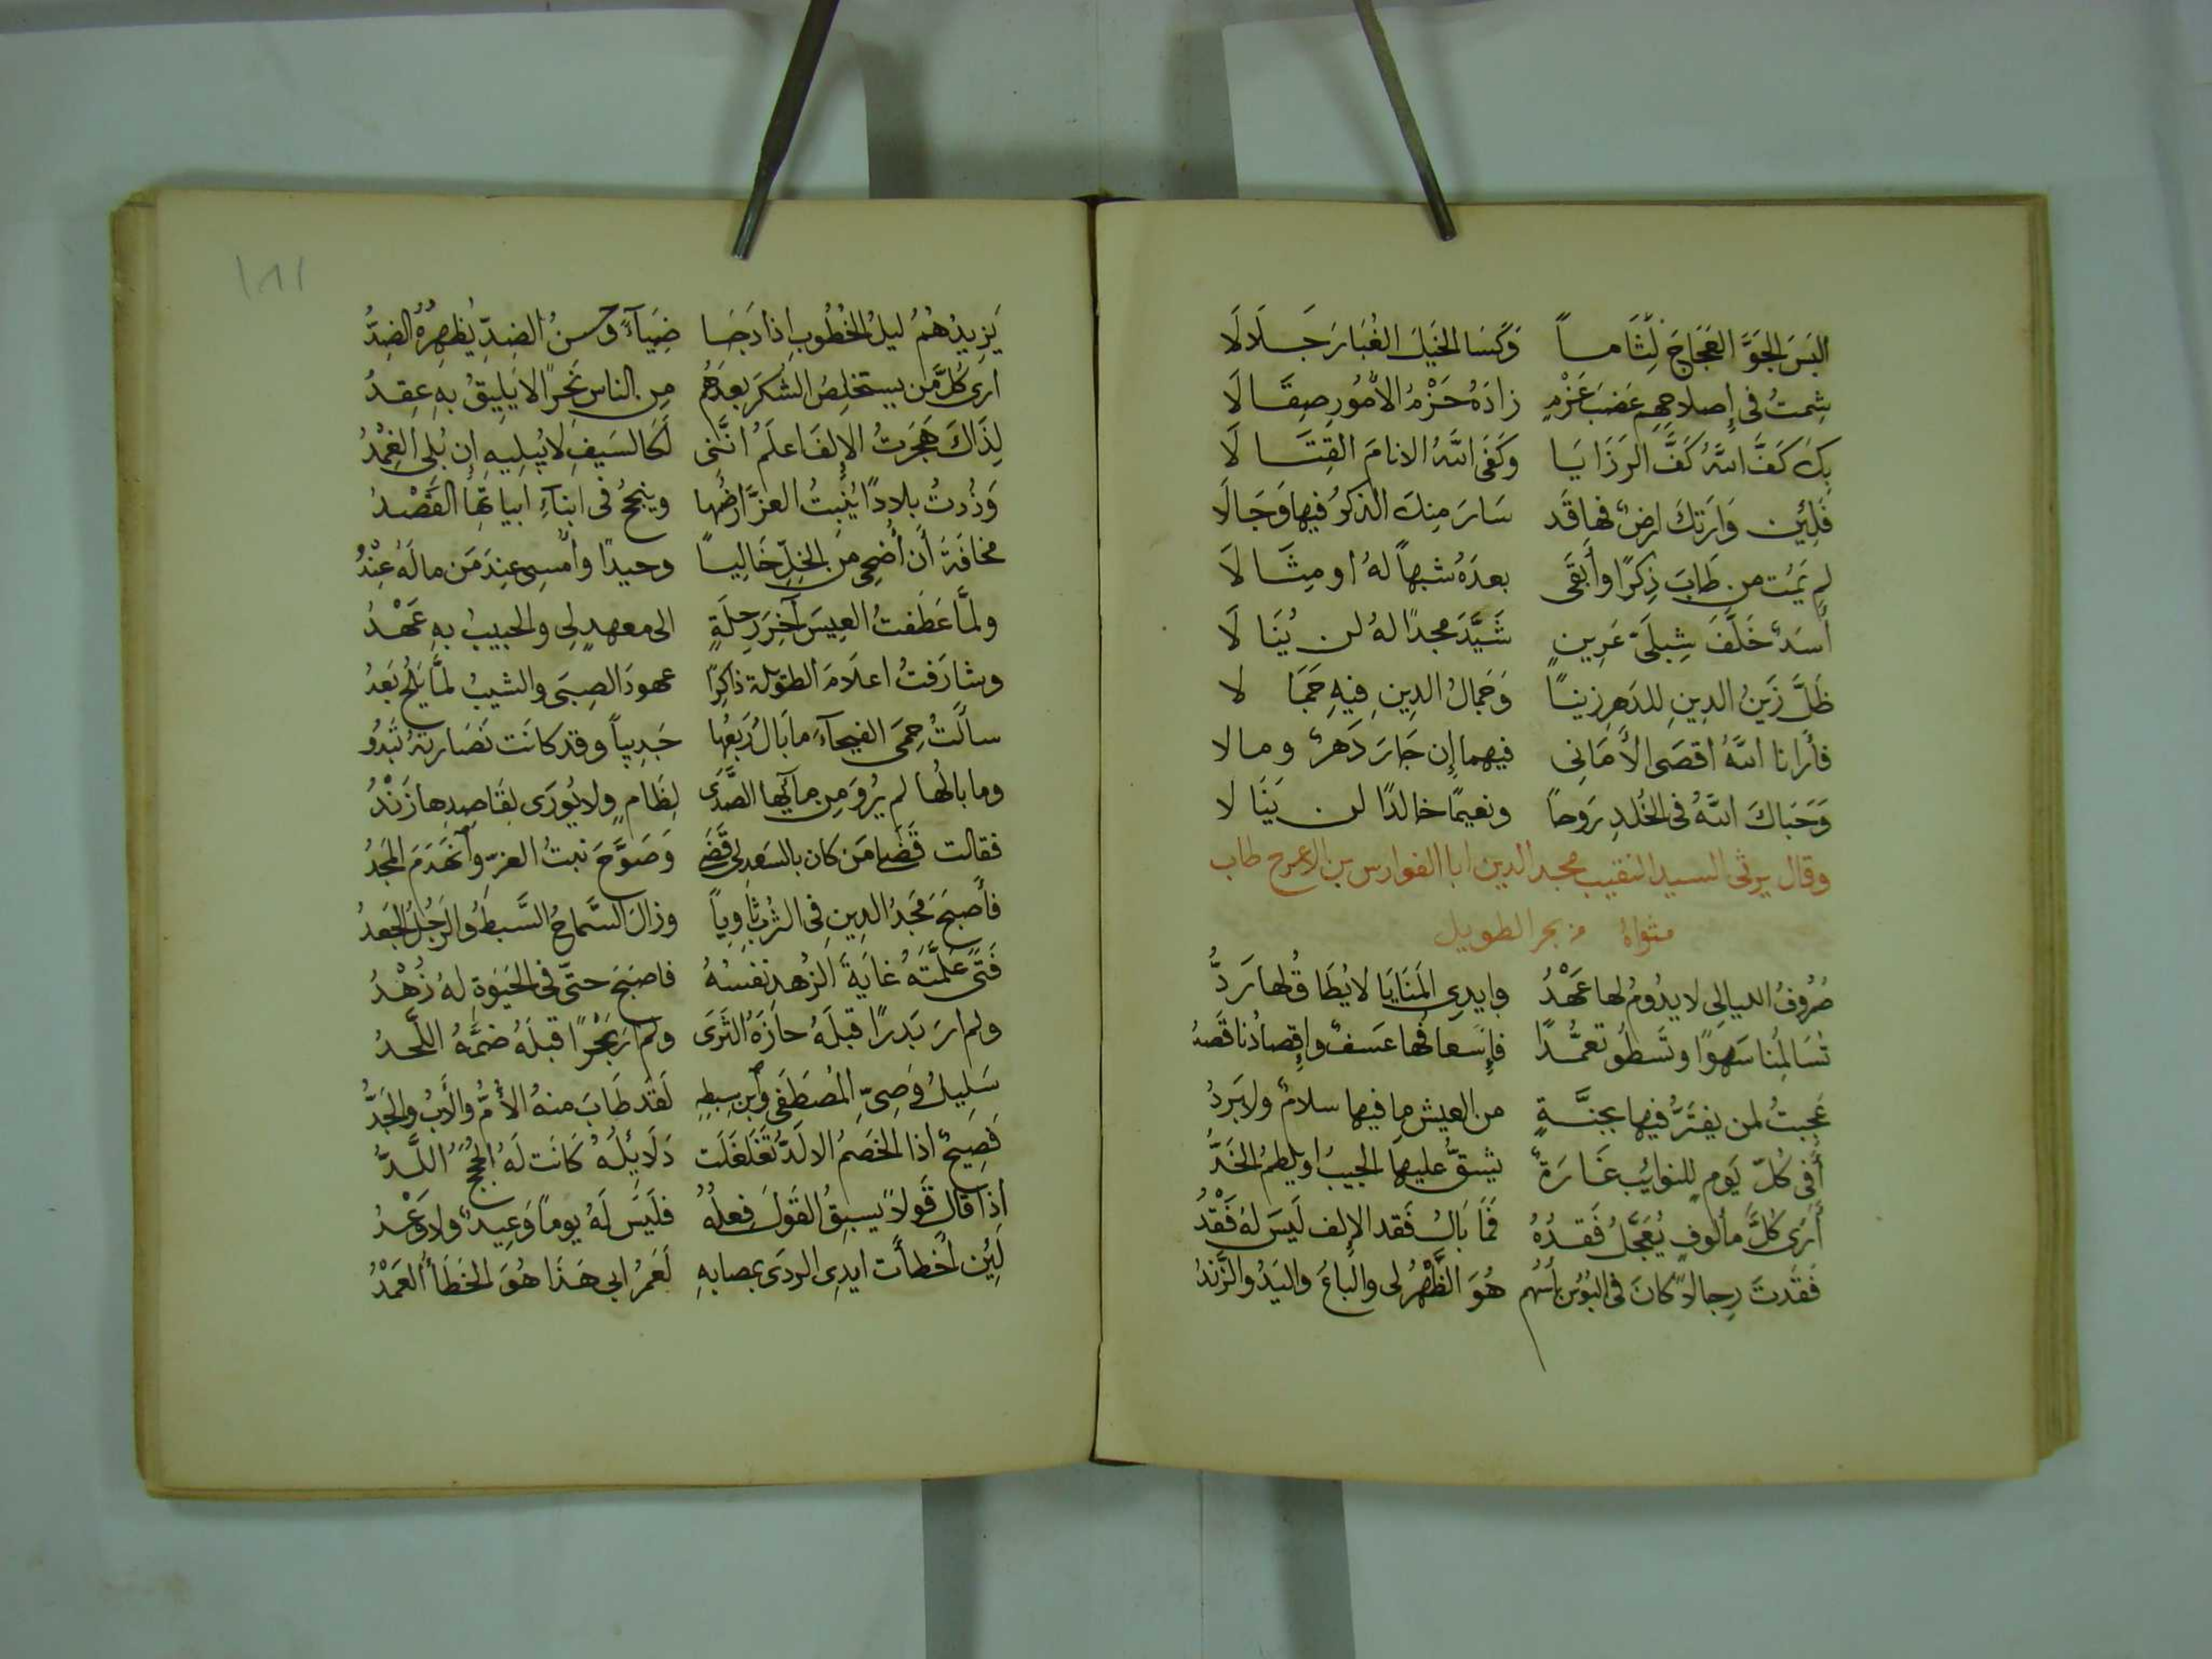 البَسَ الجَوَّ العَجَاجَ لِثَاماً وَكَسَا الخَيلَ الغُبَارَ جَلَالَا
شِمتُ فى إِصلاحِهِم عَضبَ عَزْمٍ زادَهُ حَزْمُ الأُمُورِ صِقَالَا
بِكَ كَفَّ اللهُ كَفَّ الرَزَايَا وكَفَى اللهُ الانامَ القِتَالَا
فَلِئِن وَارَتكَ ارضٌ فهاقَد سَارَ مِنكَ الذكرُ فيها وَجَالَا
لم يَمُت من طَابَ ذِكرًا وأَبقَى بعدَهُ شبهاً لهُ او مِثَالَا
أَسَدٌ خَلَّفَ شِبلَىْ عَرِينٍ شَيَّدَ مجدًا لهُ لن يُنَالَا
ظَلَّ زَينُ الدينِ للدَهرِ زينًا وَجَمالُ الدِينِ فِيهِ جَمَالا
فأَرانا اللهُ اقصَى الأَمَانِى فيهما إِن جَارَ دَهرٌ ومالا
وَحَبَاكَ اللهُ فى الخُلدِ رَوحًا ونعيمًا خالدًا لن يَنَالا
وقال يرثى السيد النقيب مجد الدين ابا الفوارس بن الاعرج طاب
مثواهُ من بحر الطويل
صُرُوفُ الليالِى لا يدُومُ لها عَهْدُ وايدِى المَنَايَا لا يُطَاقُ لها رَدُّ
تُسَالِمُنا سَهوًا وتَسطُو تعمُّدًا فإِسعافُها عَسفٌ وإِقصادُنا قَصدُ
عَجِبتُ لمن يغتَرُّ فيها بجنَّةٍ من العيش ما فيها سلامٌ ولا بَردُ
أَفى كُلّ يَومٍ للنوائِب غَارَةٌ يشقُّ عليها الجيبُ او يلطمُ الخَدُّ
أَرَى كُلَّ مألوفٍ يُعَجَّلُ فَقدُهُ فَمَا بَالُ فَقد الإِلف لَيسَ لهُ فَقْدُ
فَقَدتُ رِجالاً كانَ فى البُؤس بأسُهُم هُوَ الظَّهرُ لى والباعُ واليَدُ والزَندُ
١٨١
يَزِيدُهُمُ ليلُ الخُطُوبِ اِذا دَجَا ضِيَآءً وحُسنُ الضِدِّ يُظهِرُهُ الضِدُّ
ارَى كُلَّ مَن يستخلِصُ الشُكرَ بعدَهُم مِن الناس نَحرًا لا يَلِيقُ بهِ عِقدُ
لِذَاكَ هَجَرتُ الإِلفَ اعلَمُ انَّنِى لَكَالسَيفِ لا يُبلِيهِ إِن بُلِى الغِمْدُ
وَزُرتُ بلادًا يُنبِتُ العزَّ ارضُها وينجَحُ فى ابنآءِ ابياتِها القَصْدُ
مخافَةَ أَن أُضحِى من الخِلِّ خَالِيًا وحيدًا وأُمسِى عِندَ مَن مالَهُ عِنْدُ
ولمَّا عَطَفتُ العِيسَ آخِرَ رِحلَةٍ الى معهدٍ لِى والحبيبُ بهِ عَهْدُ
وشارَفتُ اعلَامَ الطوَيلة ذاكِرًا عهودَ الصِبَى والشيبُ لمَّا يَلُح بَعدُ
سالَتُ حِمَى الفيحآءِ ما بَالُ رَبعُها جَدِيباً وقد كانَت نَضَارتهُ تَبدُو
وما بالُها لم يُروَ مِن مآئِها الصَّدَى لِظَامٍ ولا يُورَى لِقَاصِدِها زَنْدُ
فقالت قَضَى مَن كان بالسَعدِ لى قَضَى وَصَوَّحَ نبتُ العزِّ وانهَدَمَ المَجدُ
فأَصبَحَ مَجدُ الدِينِ فى التُربِ ثاوِياً وزالَ السَّماحُ السَّبطُ والرَجُلُ الجَعدُ
فَتًى عَلَّمَتهُ غايَةَ الزُهدِ نفسُهُ فاصبَحَ حتّى فى الحَيَوةِ لهُ زُهْدُ
ولم ارَ بَدرًا قبلَهُ حازَهُ الثَرَى ولم ارَ بَحْرًا قبلَهُ ضمَّهُ اللَّحدُ
سَلِيلُ وَصِىّ المُصطَفَى وابن سِبطِهِ لَقَد طَابَ منهُ الأُمُّ والأَبُ والجَدُّ
فَصِيحٌ اذا الخَصمُ الالَدُّ تَغَلغَلَت دَلَايِلُهُ كَانَت لَهُ الحُجَجُ اللُّدُّ
اِذا قالَ قَولاً يَسبِقُ القَولَ فِعلُهُ فلَيسَ لَهُ يوماً وَعِيدٌ ولا وَعْدُ
لَئِن اخطأَت ايدِى الردَى بمصابهِ لَعَمرُ ابى هَذَا هُوَ الخَطَأُ العَمْدُ